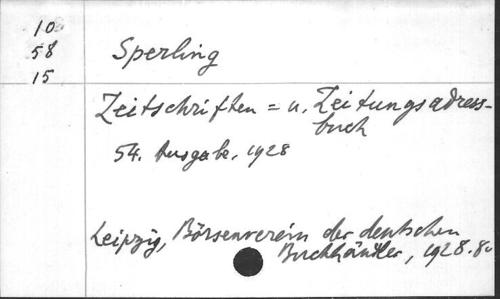 10
58
15
Sperling
Zeitschriften = u. Zeitungsadress-
buch
54. Ausgabe, 1928
Leipzig, Börsenverein der deutschen
Buchhändler, 1928. 8o